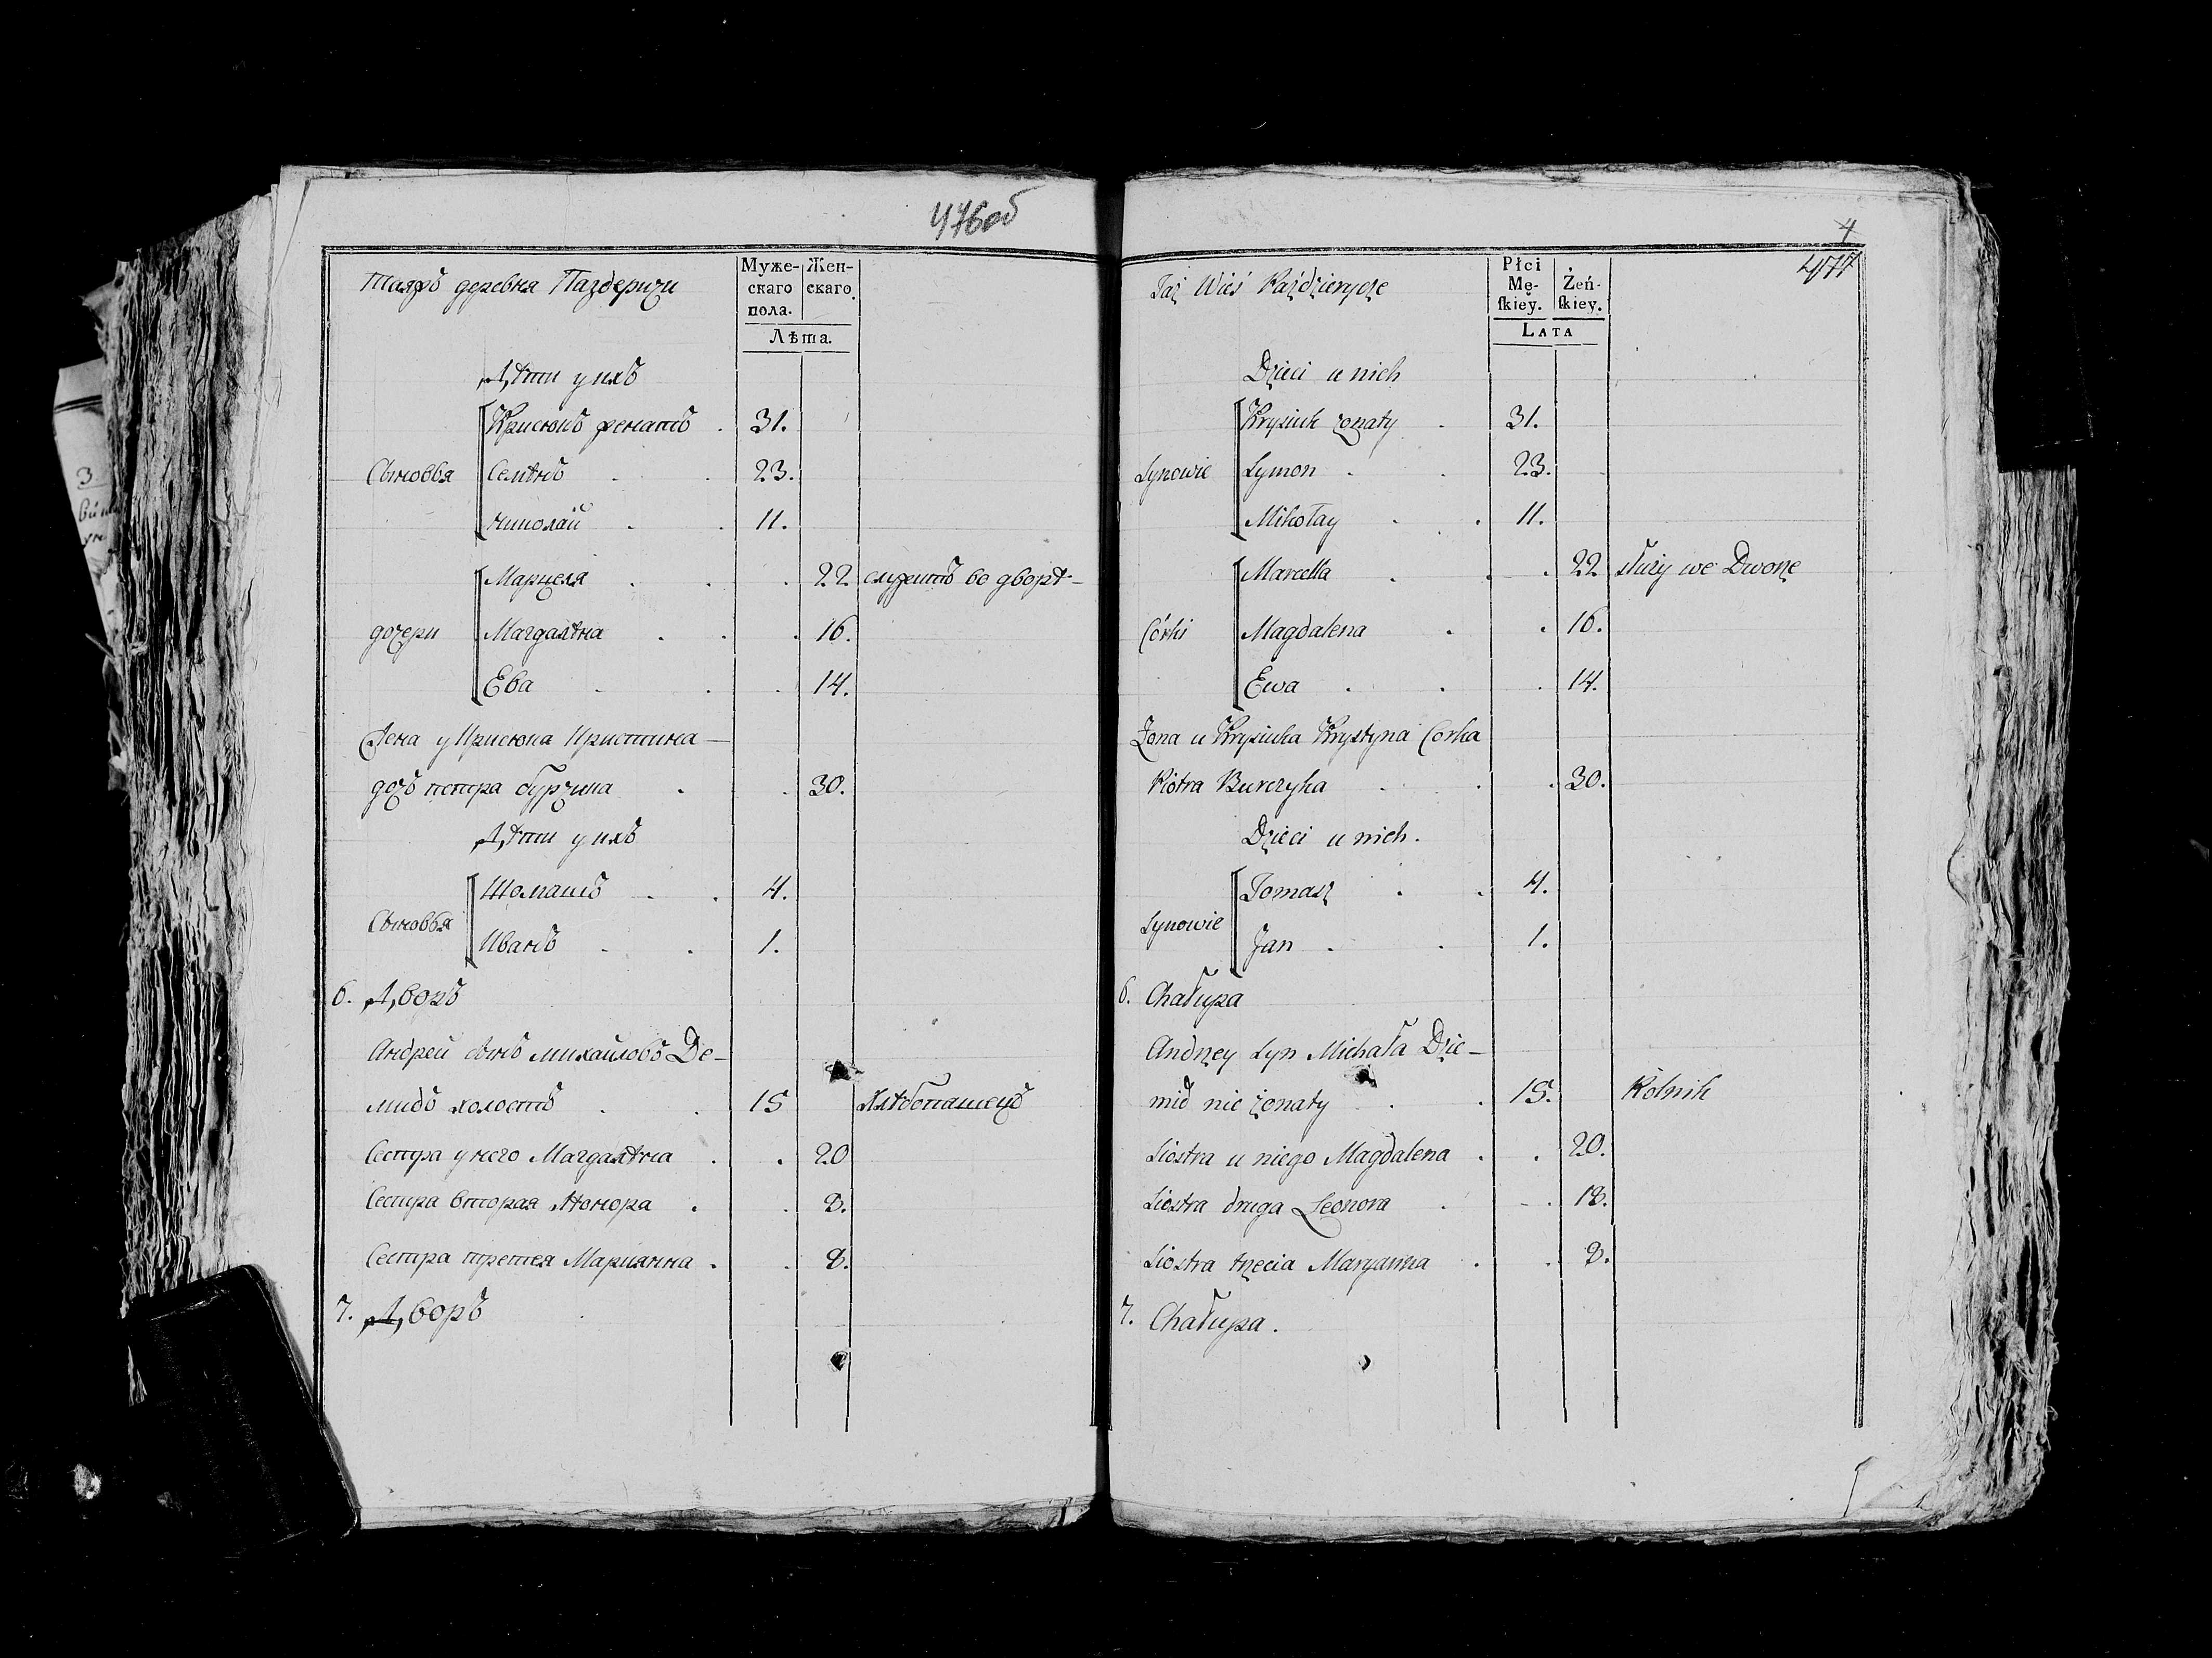 476об
Таяжъ деревня Паздеричи
Муже-
скаго
пола.
Жен-
скаго.
Лѣта.
Дѣти у нихъ
Крисюкъ женатъ . 31.
Сыновья Семѣнъ . . 23.
Николай . . 11.
Марцеля . . . 22 служитъ во дворѣ
дочери Магдалѣна . . . 16.
Ева . . . 14.
Жена у Крисюка Кристина
дочь петра бурчика . . 30.
Дѣти у нихъ
Томашъ . . 4.
Сыновья
Иванъ . . 1.
6. Дворъ
Андрей сынъ михайловъ Де-
мидъ холостъ . . 15 хлѣбопашецъ
Сестра у него Магдалѣна . . 20
Сестра вторая Лѣонора . . 8.
Сестра третея Марианна . . 8.
7. Дворъ
4
477
Taż Wieś Paździerycze
Płci
Mę-
skiey.
Żeń-
skiey.
LATA
Dzieci u nich
Krysiuk żonaty . 31.
Synowie Symon . . 23.
Mikołay . . 11.
Marcella . . . 22 służy we Dworze
Córki Magdalena . . 16.
Ewa . . . 14.
Żona u Krysiuka Krystyna Corka
Piotra Burczyka . . . 30.
Dzieci u nich.
Tomasz . . 4.
Synowie
Jan . . 1.
6. Chałupa
Andrzey Syn Michała Dzie-
mid nie żonaty . . 15. Rolnik
Siostra u niego Magdalena . . 20.
Siostra druga Leonora . . . 18.
Siostra trzecia Maryanna . . 8.
7. Chałupa.